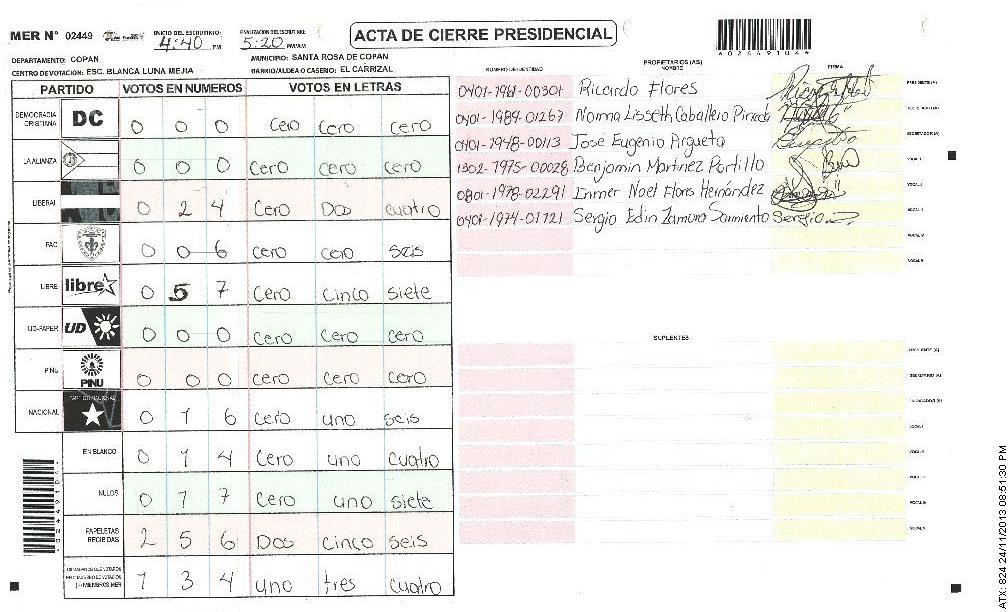 MER N° 02449 INICIO DEL ESCRUTINIO: 4:40 PM FINALIZACION DEL ESCRUTINIO: 5:20 PM/AM
ACTA DE CIERRE PRESIDENCIAL
DEPARTAMENTO: COPAN MUNICIPIO: SANTA ROSA DE COPAN
CENTRO DE VOTACION: ESC. BLANCA LUNA MEJIA BARRIO/ALDEA O CASERIO: EL CARRIZAL
PARTIDO VOTOS EN NUMEROS VOTOS EN LETRAS
DEMOCRACIA CRISTIANA DC 0 0 0 Cero Cero cero
LA ALIANZA 0 0 0 Cero Cero cero
LIBERAL 0 2 4 Cero Dos cuatro
PAC 0 0 6 Cero cero seis
LIBRE libre 0 5 7 Cero Cinco siete
UD-FAPER UD 0 0 0 Cero Cero cero
PINU PINU 0 0 0 Cero Cero cero
NACIONAL 0 1 6 Cero uno seis
EN BLANCO 0 1 4 Cero uno cuatro
NULOS 0 1 7 Cero uno siete
PAPELETAS RECIBIDAS 2 5 6 Dos Cinco seis
1 3 4 uno tres cuatro
6024491046
NUMERO DE IDENTIDAD PROPIETARIOS (AS) NOMBRE FIRMA
0401-1961-00301 Ricardo Flores PRESIDENTE (A)
0401-1989-01267 Norma Lisseth Caballero Pineda SECRETARIO (A)
0401-1948-00113 Jose Eugenio Argueta ESCRUTADOR (A)
1302-1975-00028 Benjamin Martinez Portillo VOCAL I
0801-1978-02291 Enmer Noel Flores Hernández VOCAL II
0401-1974-01721 Sergio Edin Zamora Sarmiento Sergio VOCAL III
VOCAL IV
VOCAL V
SUPLENTES
PRESIDENTE (A)
SECRETARIO (A)
ESCRUTADOR (A)
VOCAL I
VOCAL II
VOCAL III
VOCAL IV
VOCAL V
ATX: 824 24/11/2013 08:51:30 PM